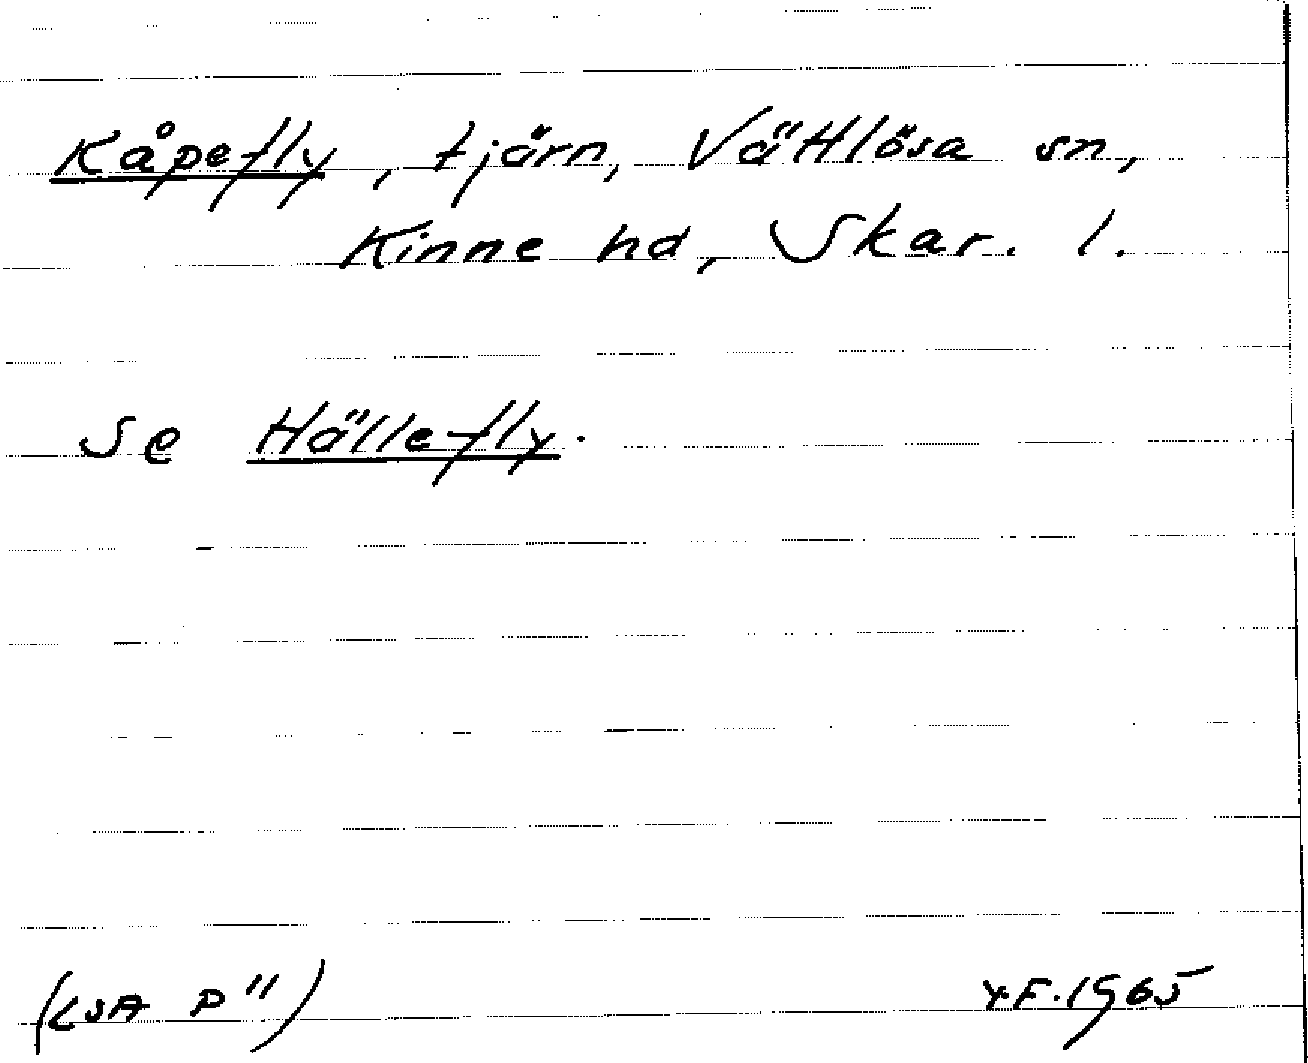 Kåpefly, tjärn, Vättlösa sn,
Kinne hd, Skar. l.
Se Hällefly.
(LSA P") Y.F. 1965